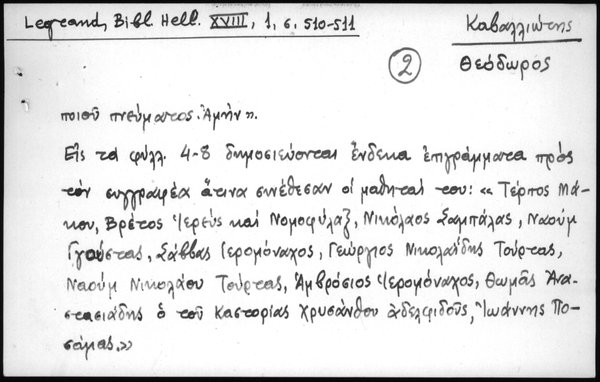 Legrand, Bibl. Hell. XVIII, 1, σ. 510-511
Καβαλλιώτης
Θεόδωρος
2
ποιοῦ πνεύματος. Ἀμήν».
Εἰς τὰ φύλλ. 4-8 δημοσιεύονται ἕνδεκα ἐπιγράμματα πρὸς
τὸν συγγραφέα ἅτινα συνέθεσαν οἱ μαθηταί του: «Τέρπος Μά-
κου, Βρέτος Ἱερεὺς καὶ Νομοφύλαξ, Νικόλαος Σαμπάλας, Ναοὺμ
Γγούστας, Σάββας Ἱερομόναχος, Γεώργιος Νικολαΐδης Τούρτας,
Ναοὺμ Νικολάου Τούρτας, Ἀμβρόσιος Ἱερομόναχος, Θωμᾶς Ἀνα-
στασιάδης ὁ τοῦ Καστορίας Χρυσάνθου ἀδελφιδοῦς, Ἰωάννης Πο-
σάμας.»